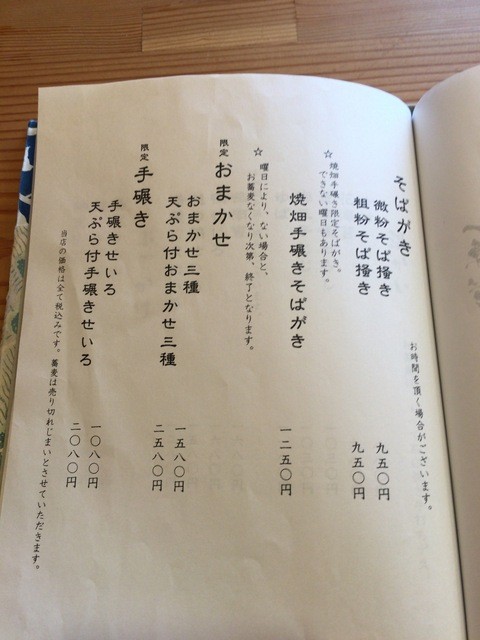 そばがき
お時間を頂く場合がございます。
微粉そば掻き 九五〇円
粗粉そば掻き 九五〇円
☆焼畑手碾き限定そばがき。
できない曜日もあります。
焼畑手碾きそばがき 一二五〇円
☆曜日により、ない場合と、
お蕎麦なくなり次第、終了となります。
限定 おまかせ
おまかせ三種 一五八〇円
天ぷら付おまかせ三種 二五八〇円
限定 手碾き
手碾きせいろ 一〇八〇円
天ぷら付手碾きせいろ 二〇八〇円
当店の価格は全て税込みです。蕎麦は売り切れじまいとさせていただきます。